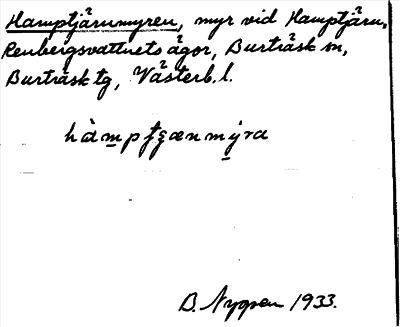 Hamptjärnmyren, myr vid Hamptjärn,
Renbergsvattnets ägor, Burträsk sn,
Burträsk tg, Västerb. l.
B. Nygren 1933.